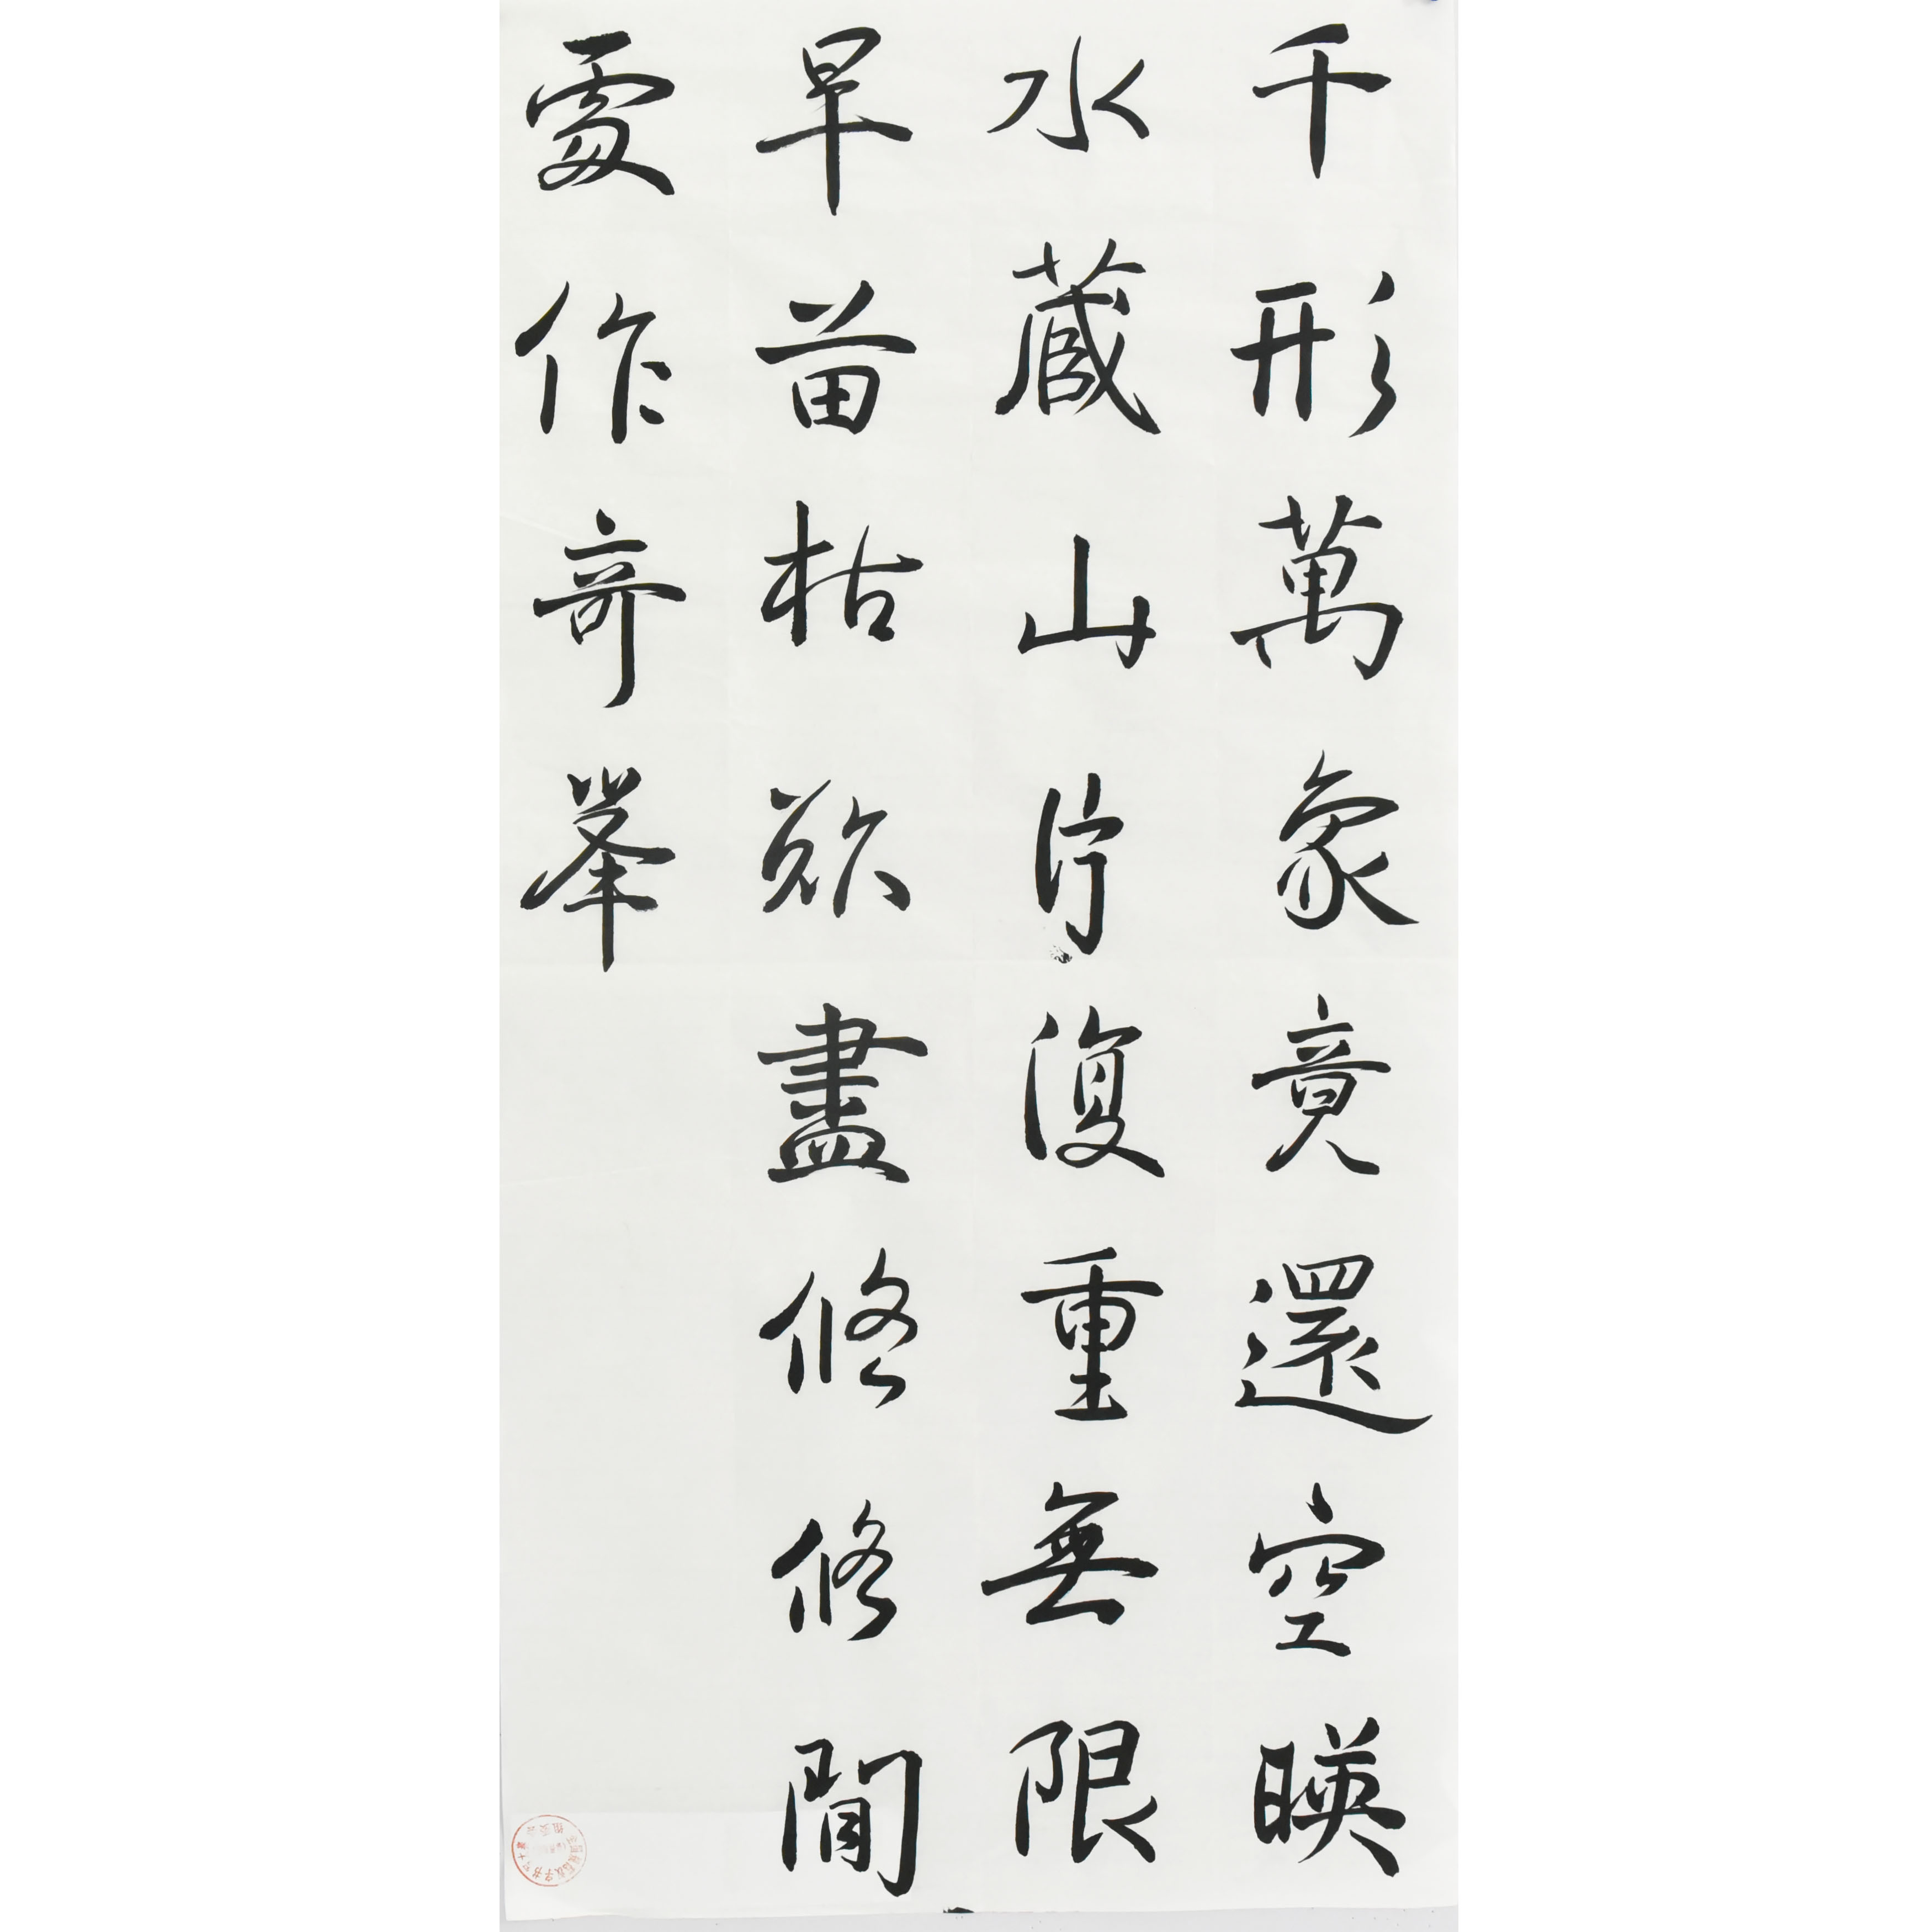 千形萬象竟還空暎
水蔵山片復重無限
旱苗枯欲盡修修閒
處作奇峯